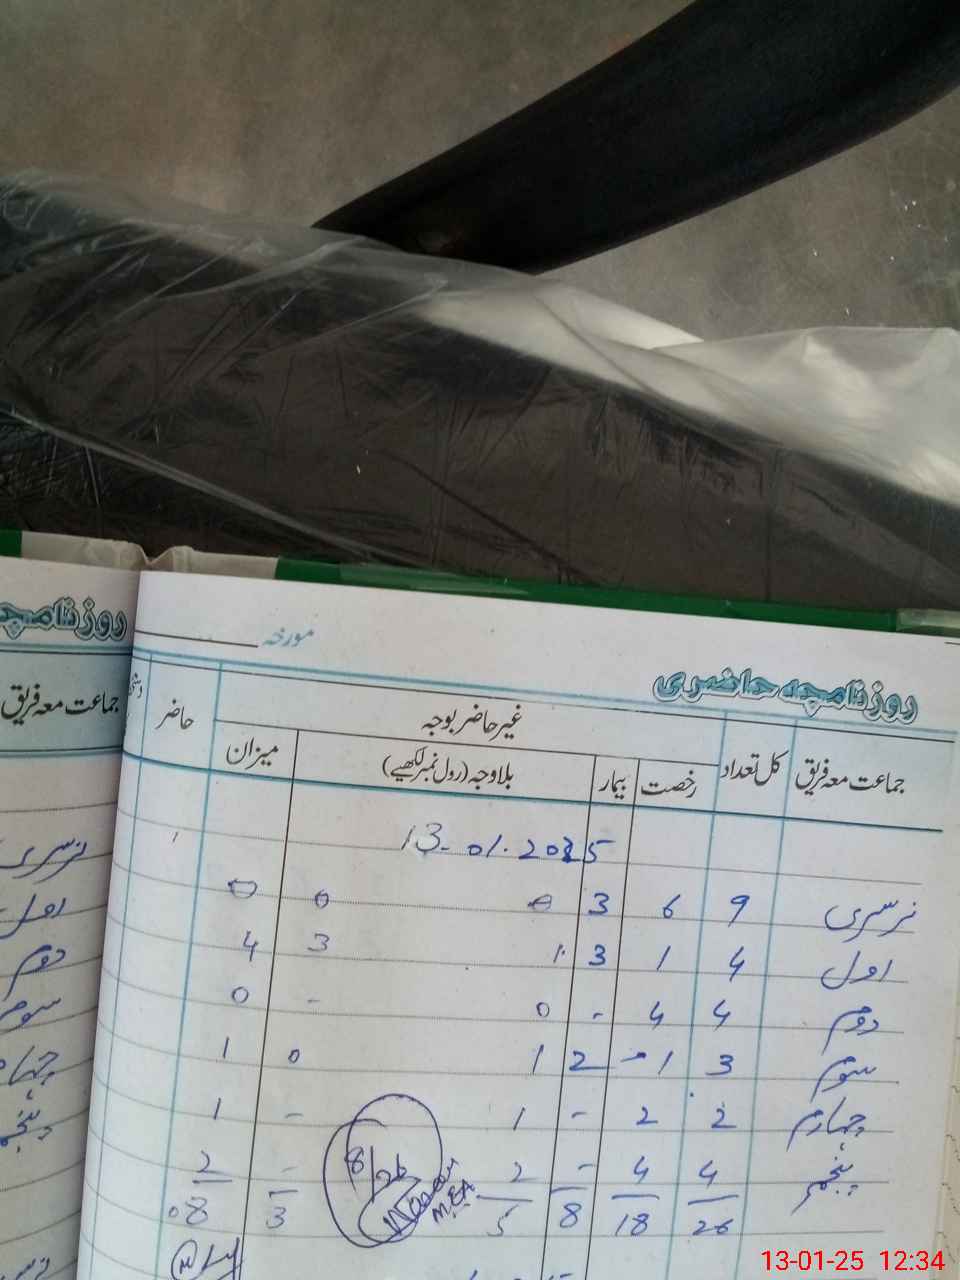 روزنامچہ
مورخہ
روزنامچہ حاضری
جماعت معہ فریق
جماعت معہ فریق کل تعداد غیر حاضر بوجہ حاضر
رخصت بیمار بلاوجہ (رول نمبر لکھیے) میزان
13-01-2025
نرسری 9 6 3 0 0 0
اول 4 1 3 1 3 4
دوم 4 4 - 0 - 0
سوم 3 1 2 1 0 1
چہارم 2 2 - 1 - 1
پنجم 4 4 - 2 - 2
26 18 8 5 3 08
8/26
MEA
نرسری
اول
دوم
سوم
13-01-25 12:34